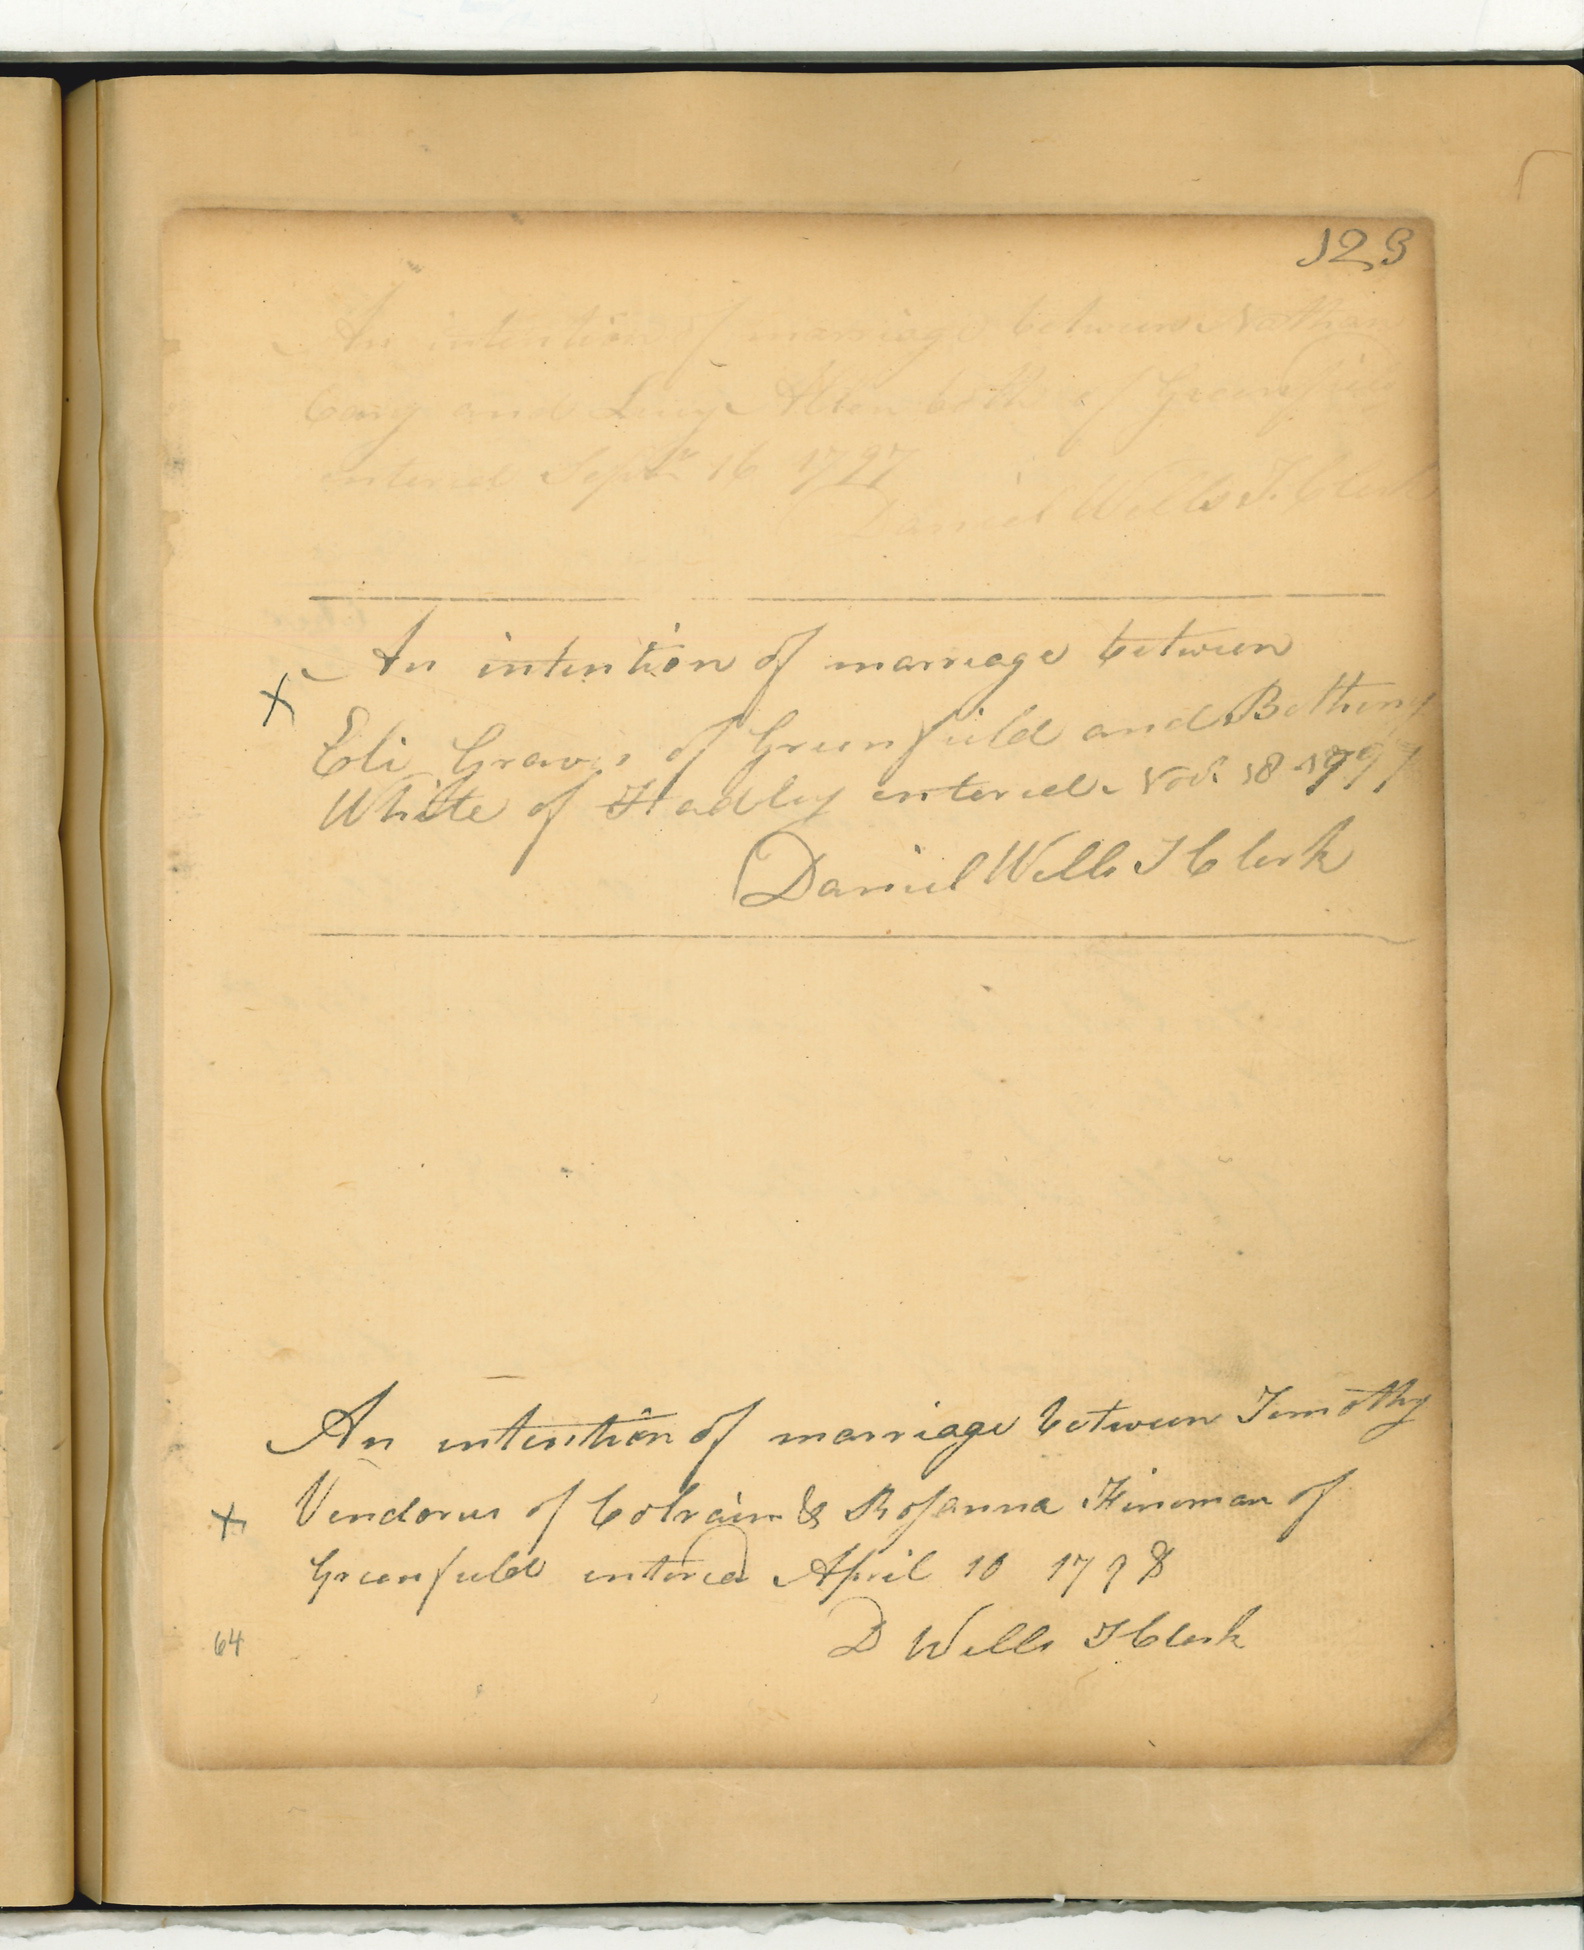 123
An intention of marriage between Nathan
Cary and Lucy Allen both of Greenfield
entered Sepr 16 1797
Daniel Wells T. Clerk
An intention of marriage between
X
Eli Graves of Greenfield and Betheny
White of Hadley entered Nov. 18 1797
Daniel Wells T Clerk
An intention of marriage between Timothy
X Vendorus of Colrain & Rosanna Hinsman of
Greenfield entered April 10 1798
64
D Wells T Clerk